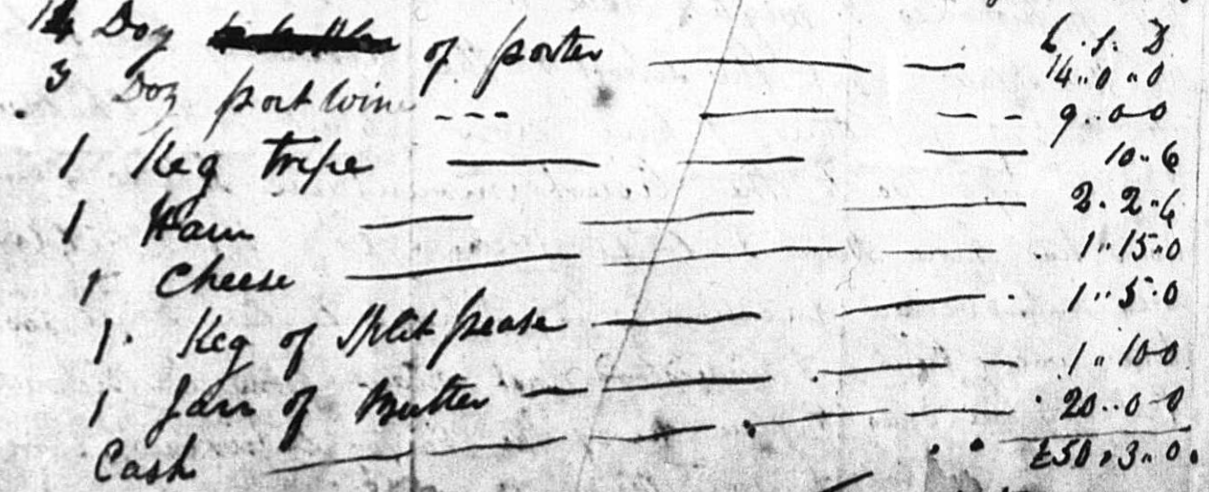 L . S . D
14 Doz of porter 14..0..0
3 Doz port wine 9..0 0
1 Keg tripe 10..6
1 Ham 2.2.6
1 Cheese 1..15.0
1. Keg of Split pease 1..5.0
1 Jarr of Butter 1..10 0
Cash 20..0 0
£50.3..0.